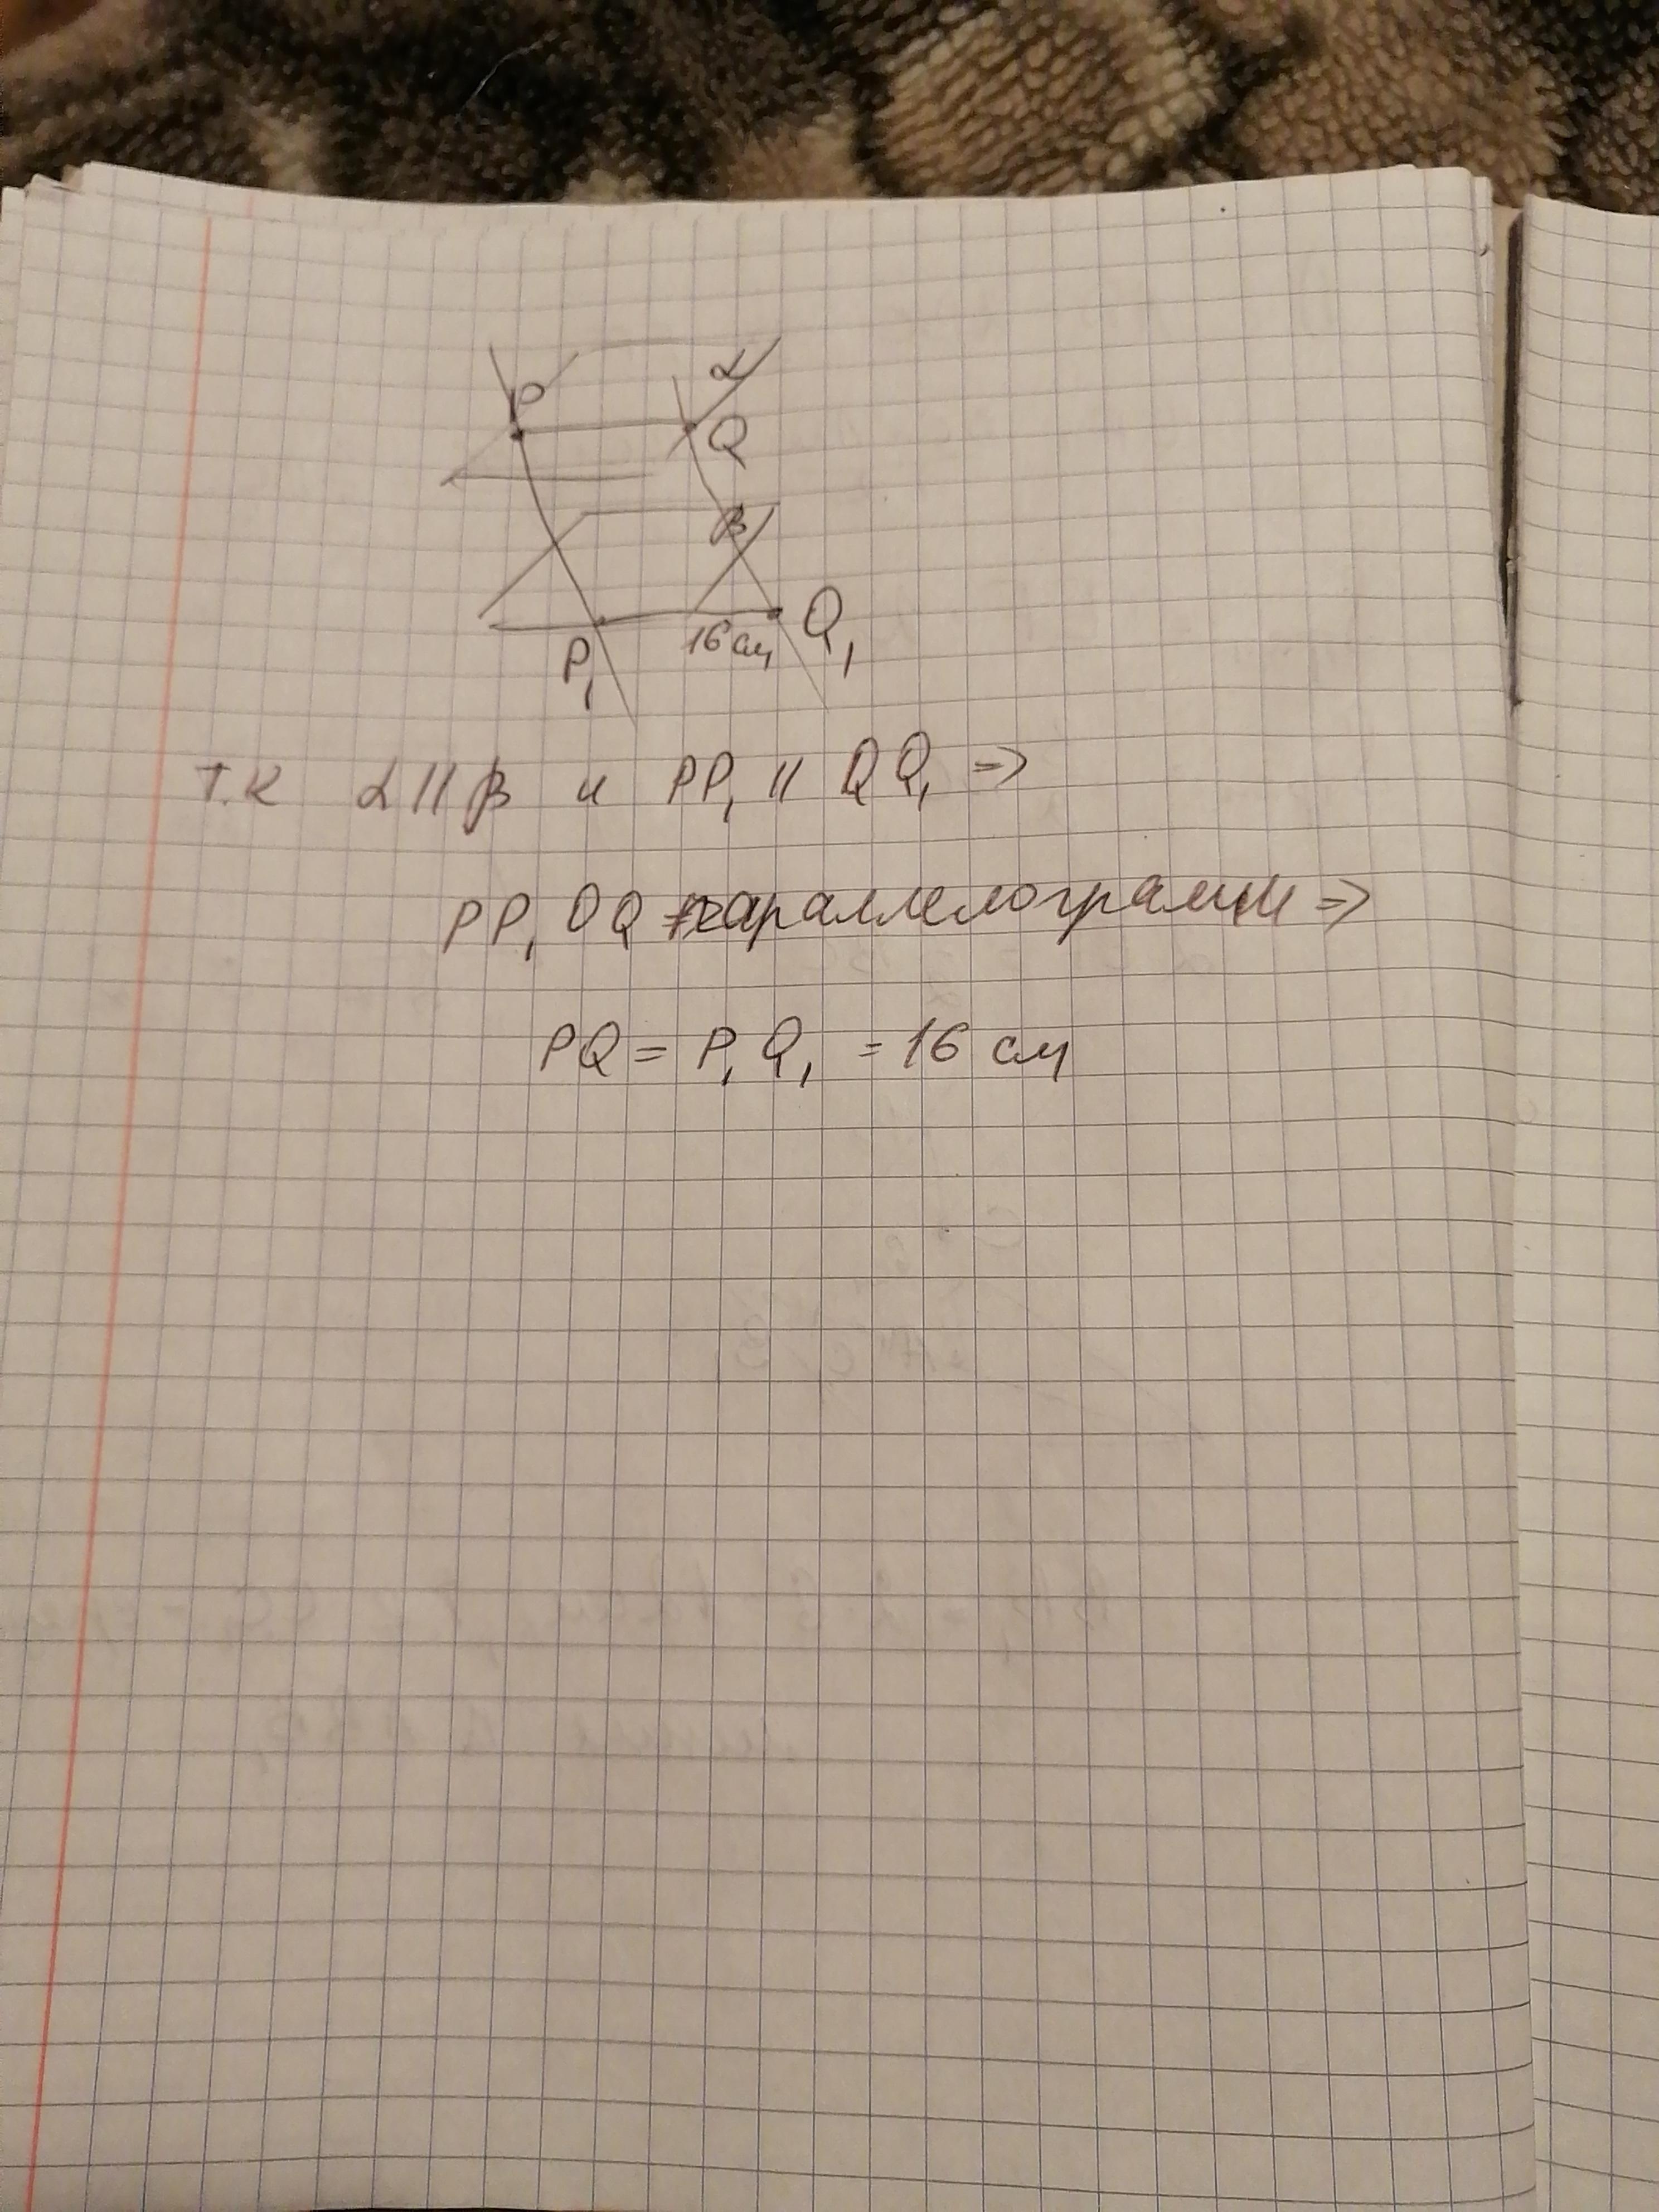 P
α
Q
β
P₁ 16 см Q₁
т.к α || β и PP₁ || QQ₁ =>
PP₁ Q Q параллелограмм =>
PQ = P₁Q₁ = 16 см